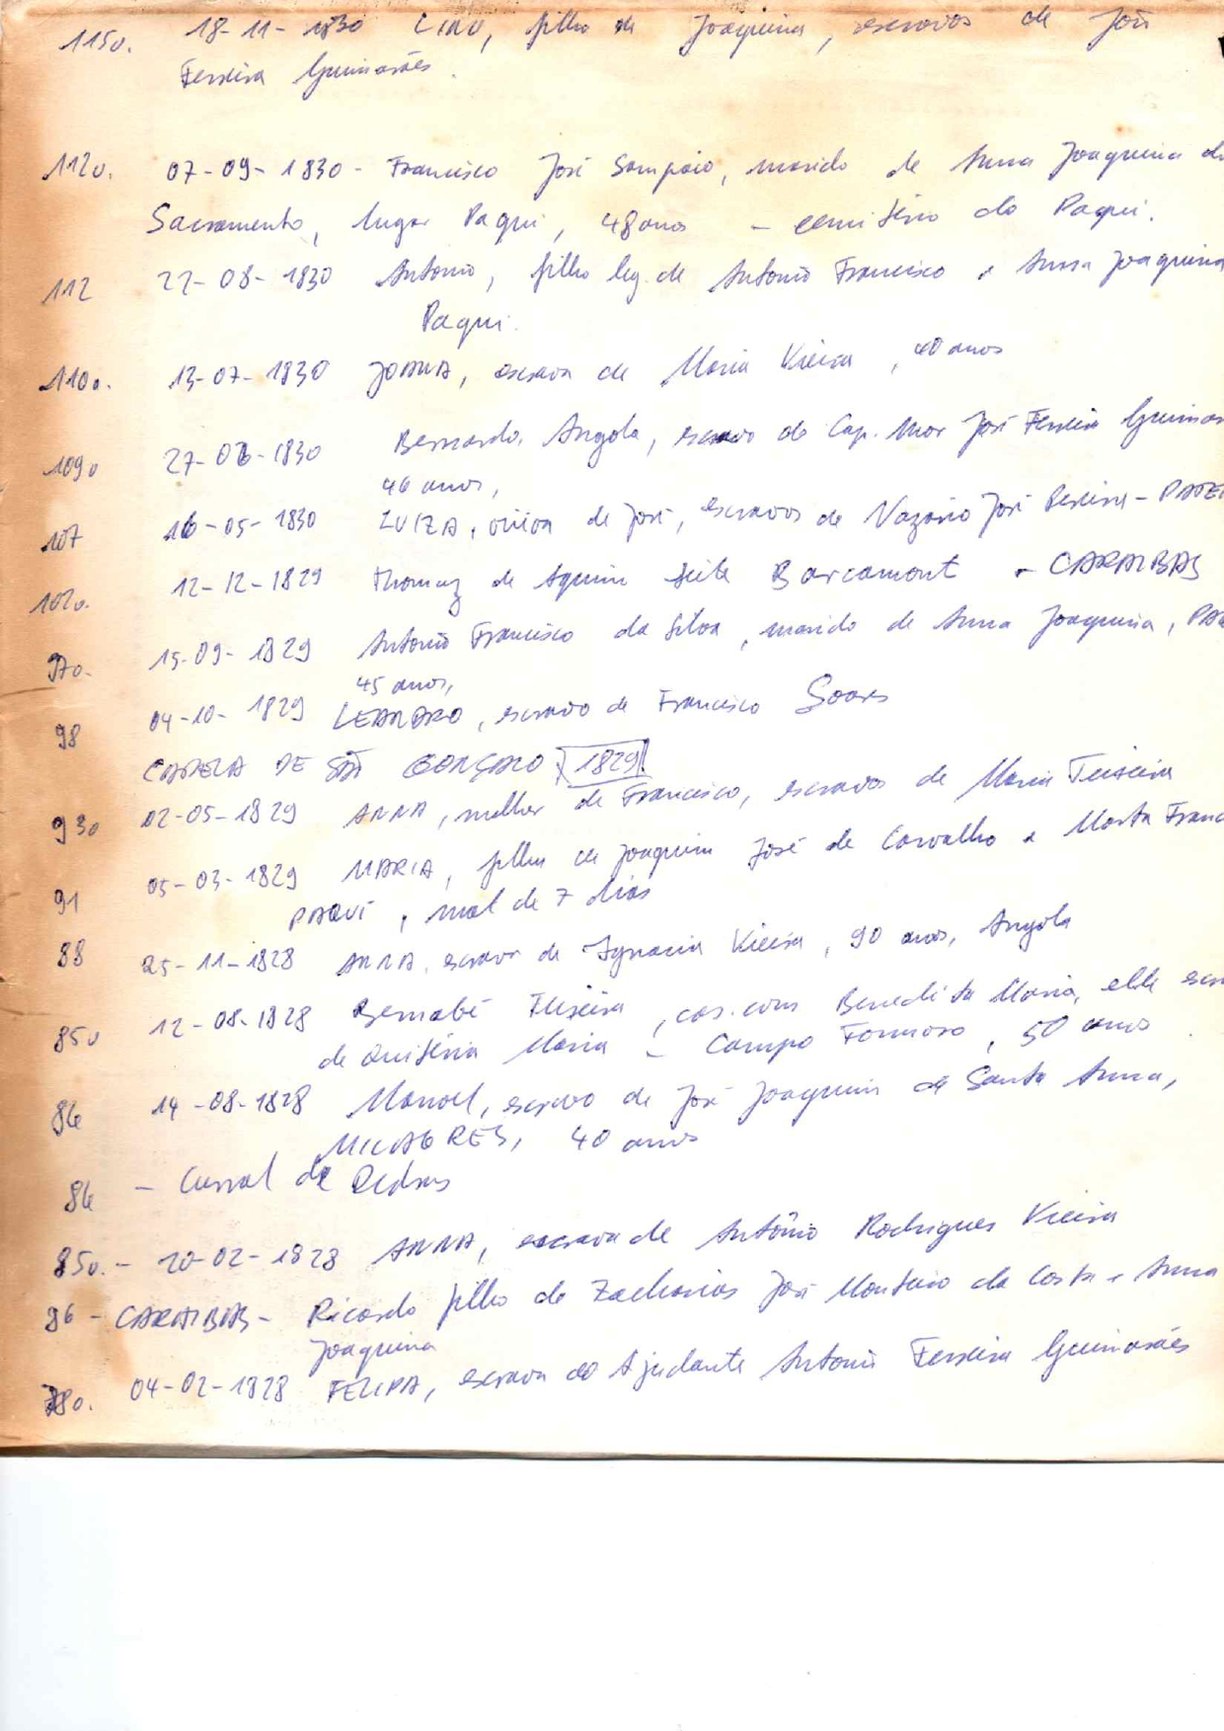 115v. 18-11-1830 CIRO, filho de Joaquina, escravos de José
Ferreira Guimarães.
112v. 07-09-1830 - Francisco José Sampaio, marido de Anna Joaquina do
Sacramento, lugar Paqui, 48 anos - cemitério do Paqui.
112 22-08-1830 Antonio, filho leg. de Antonio Francisco e Anna Joaquina
Paqui.
110v. 13-07-1830 JOANA, escrava de Maria Vieira, 40 anos
109v 27-06-1830 Bernardo, Angola, escravo do Cap. Mor José Ferreira Guimar
46 anos,
107 16-05-1830 LUIZA, viúva de José, escravos de Nazário José Pereira -
102v. 12-12-1829 Thomaz de Aquino Leite Barcamont - CARAIBAS
97v. 15-09-1829 Antonio Francisco da Silva, marido de Anna Joaquina,
45 anos,
98 04-10-1829 LEANDRO, escravo de Francisco Soares
CAPELA DE SÃO GONÇALO 1829!
93v 02-05-1829 ANNA, mulher de Francisco, escravos de Maria Teixeira
91 05-03-1829 MARIA, filha de Joaquim José de Carvalho e Marta Franc
PAQUI, mal de 7 dias
88 25-11-1828 ANNA, escrava de Ignacia Vieira, 90 anos, Angola
85v 12-08-1828 Bernabé Teixeira, cas. com Benedita Maria, elle escr
de Quitéria Maria - Campo Formoso, 50 anos.
86 14-08-1828 Manoel, escravo de José Joaquim de Santa Anna,
MILAGRES, 40 anos
86 - Curral de Pedras
85v. - 20-02-1828 ANNA, escrava de Antônio Rodrigues Vieira
86 - CARAIBAS - Ricardo filho de Zacharias José Monteiro da Costa e Anna
Joaquina
78v. 04-02-1828 FELIPA, escrava do Ajudante Antonio Ferreira Guimarães